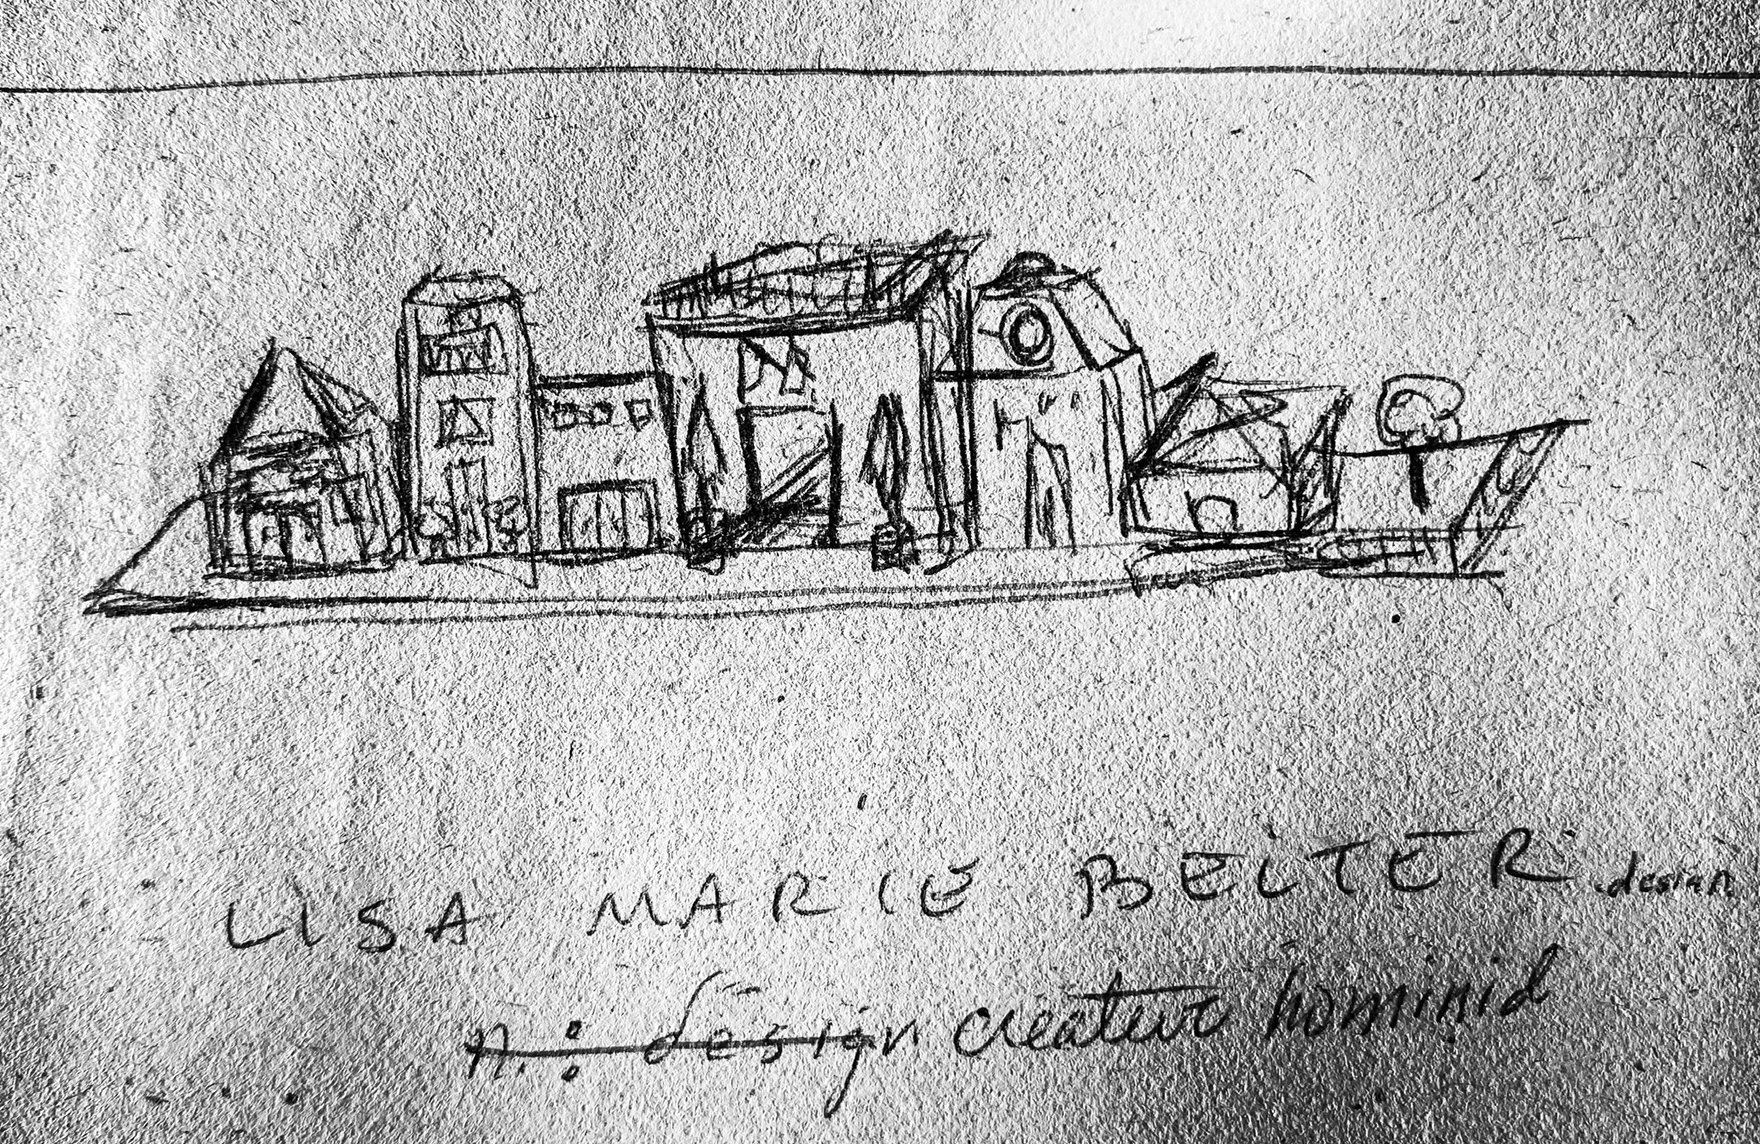 LISA MARIE BEITER .design
n.: design creative hominid